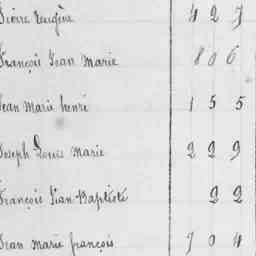 Pierre Eugène 427
François Jean Marie 806
Jean Marie henri 155
Joseph Louis Marie 229
François Jean Baptiste 22
Jean Marie françois 704